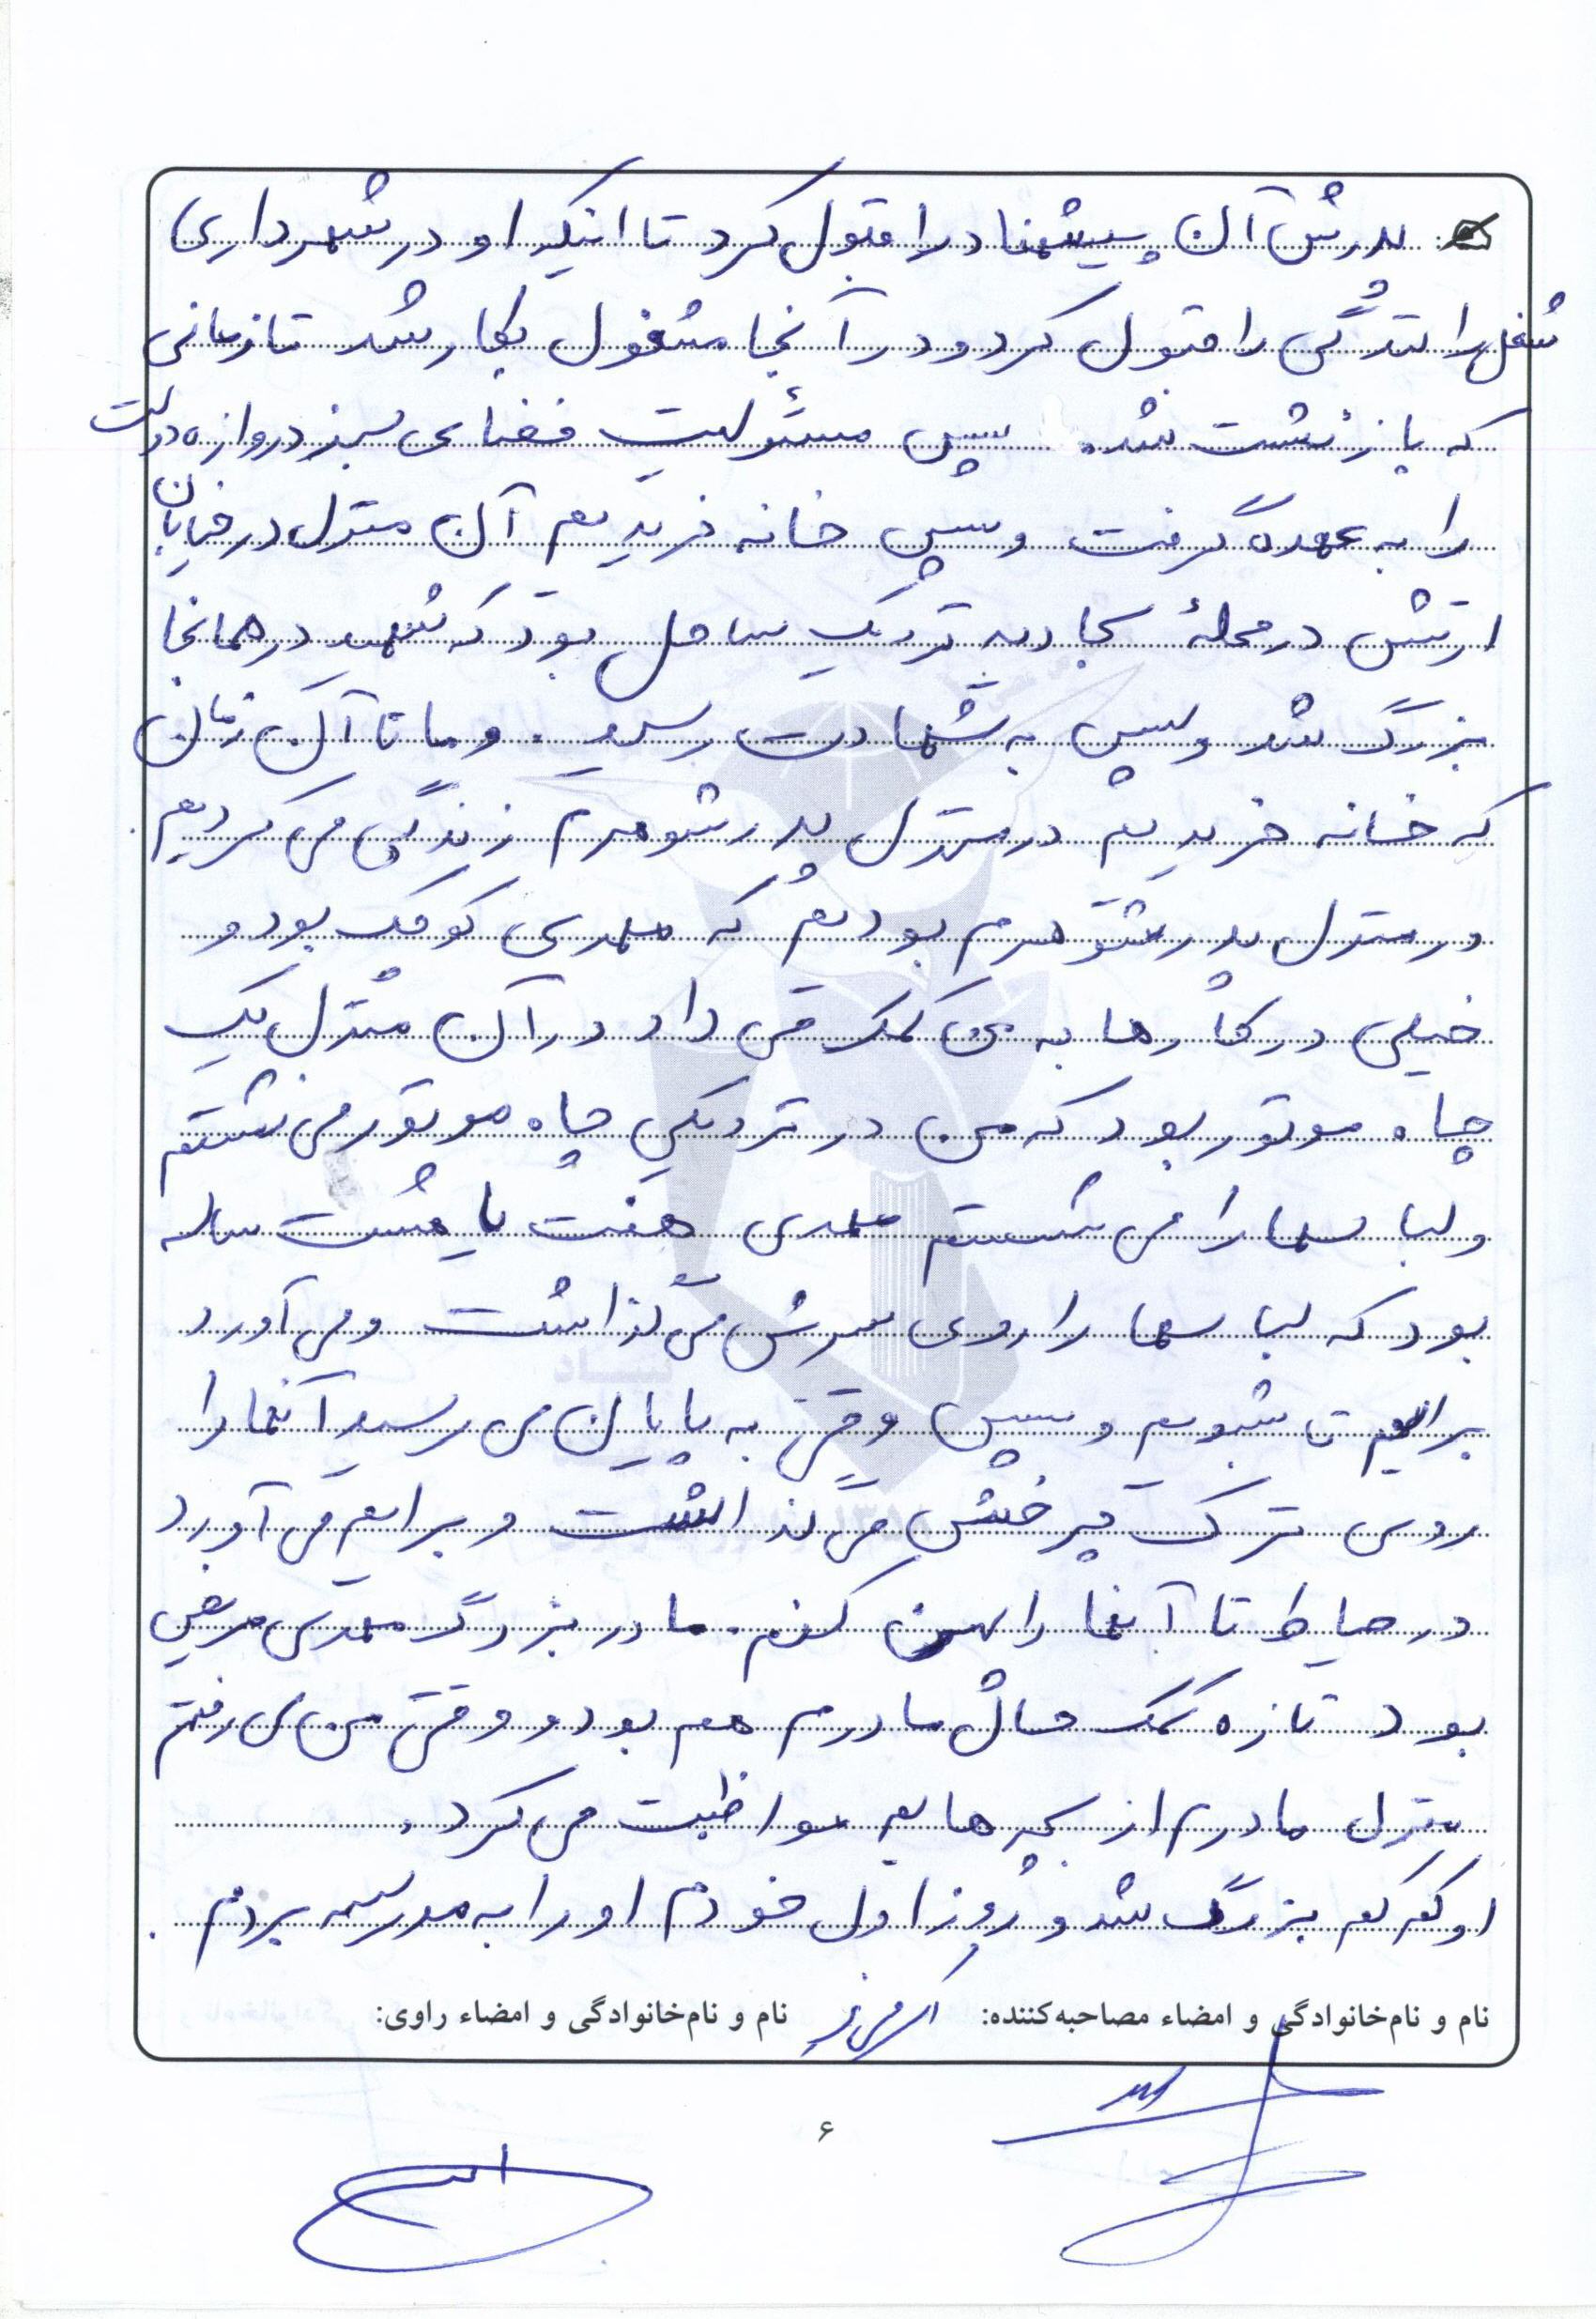 پدرش آن پیشنهاد را قبول کرد تا اینکه او در شهرداری
شغل رانندگی را قبول کرد و در آنجا مشغول بکار شد تا زمانی
که بازنشست شد. سپس مسئولیت فضای سبز دروازه دولت
را به عهده گرفت و سپس خانه خریدیم آن منزل در خیابان
ارتش در محلهٔ سجادیه نزدیک ساحل بود که شهید در همانجا
بزرگ شد و سپس به شهادت رسید. و ما تا آن زمان
که خانه خریدیم در منزل پدر شوهرم زندگی می کردیم.
در منزل پدر شوهرم بودیم که مهدی کوچک بود و
خیلی در کارها به من کمک می داد در آن منزل یک
چاه موتور بود که من در نزدیکی چاه موتور می نشستم
و لباسها را می شستم مهدی هفت یا هشت ساله
بود که لباسها را روی سرش می گذاشت و می آورد
برایم تا بشویم و سپس وقتی به پایان می رسید آنها را
روی ترک چرخش می گذاشت و برایم می آورد
در حیاط تا آنها را پهن کنم. مادر بزرگ مهدی مریض
بود تازه کمک حال مادرم هم بود و وقتی من می رفتم
منزل مادرم از بچه هایم مواظبت می کرد.
او کم کم بزرگ شد و روز اول خودم او را به مدرسه بردم.
نام و نام‌خانوادگی و امضاء مصاحبه‌کننده: نام و نام‌خانوادگی و امضاء راوی:
۶